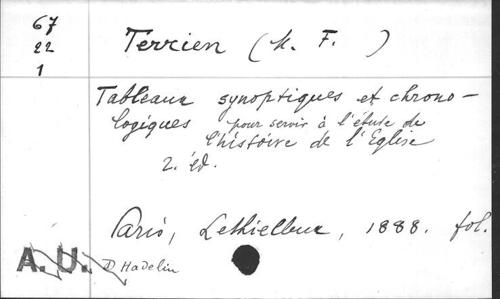 67
22
1
Terrien (M. F. )
Tableaux synoptiques et chrono-
logiques pour servir à l'étude de
l'histoire de l'Eglise
2. éd.
Paris, Lethielleux, 1888. fol.
A. U.
D Hadelin